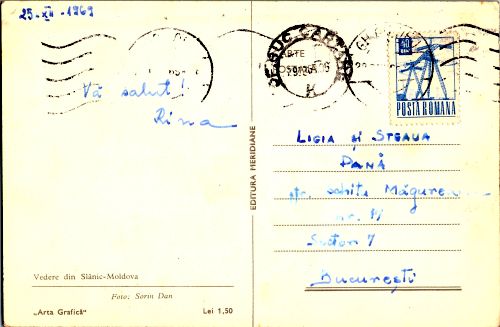 25-XII-1969
Vă salut!
Rina
Vedere din Slănic-Moldova
Foto: Sorin Dan
„Arta Grafică" Lei 1,50
EDITURA MERIDIANE
CARTE
40 BANI
POSTA ROMANA
LIGIA și STEAUA
DANĂ
str. schitu Măgureanu
nr. 17
Sector 7
București